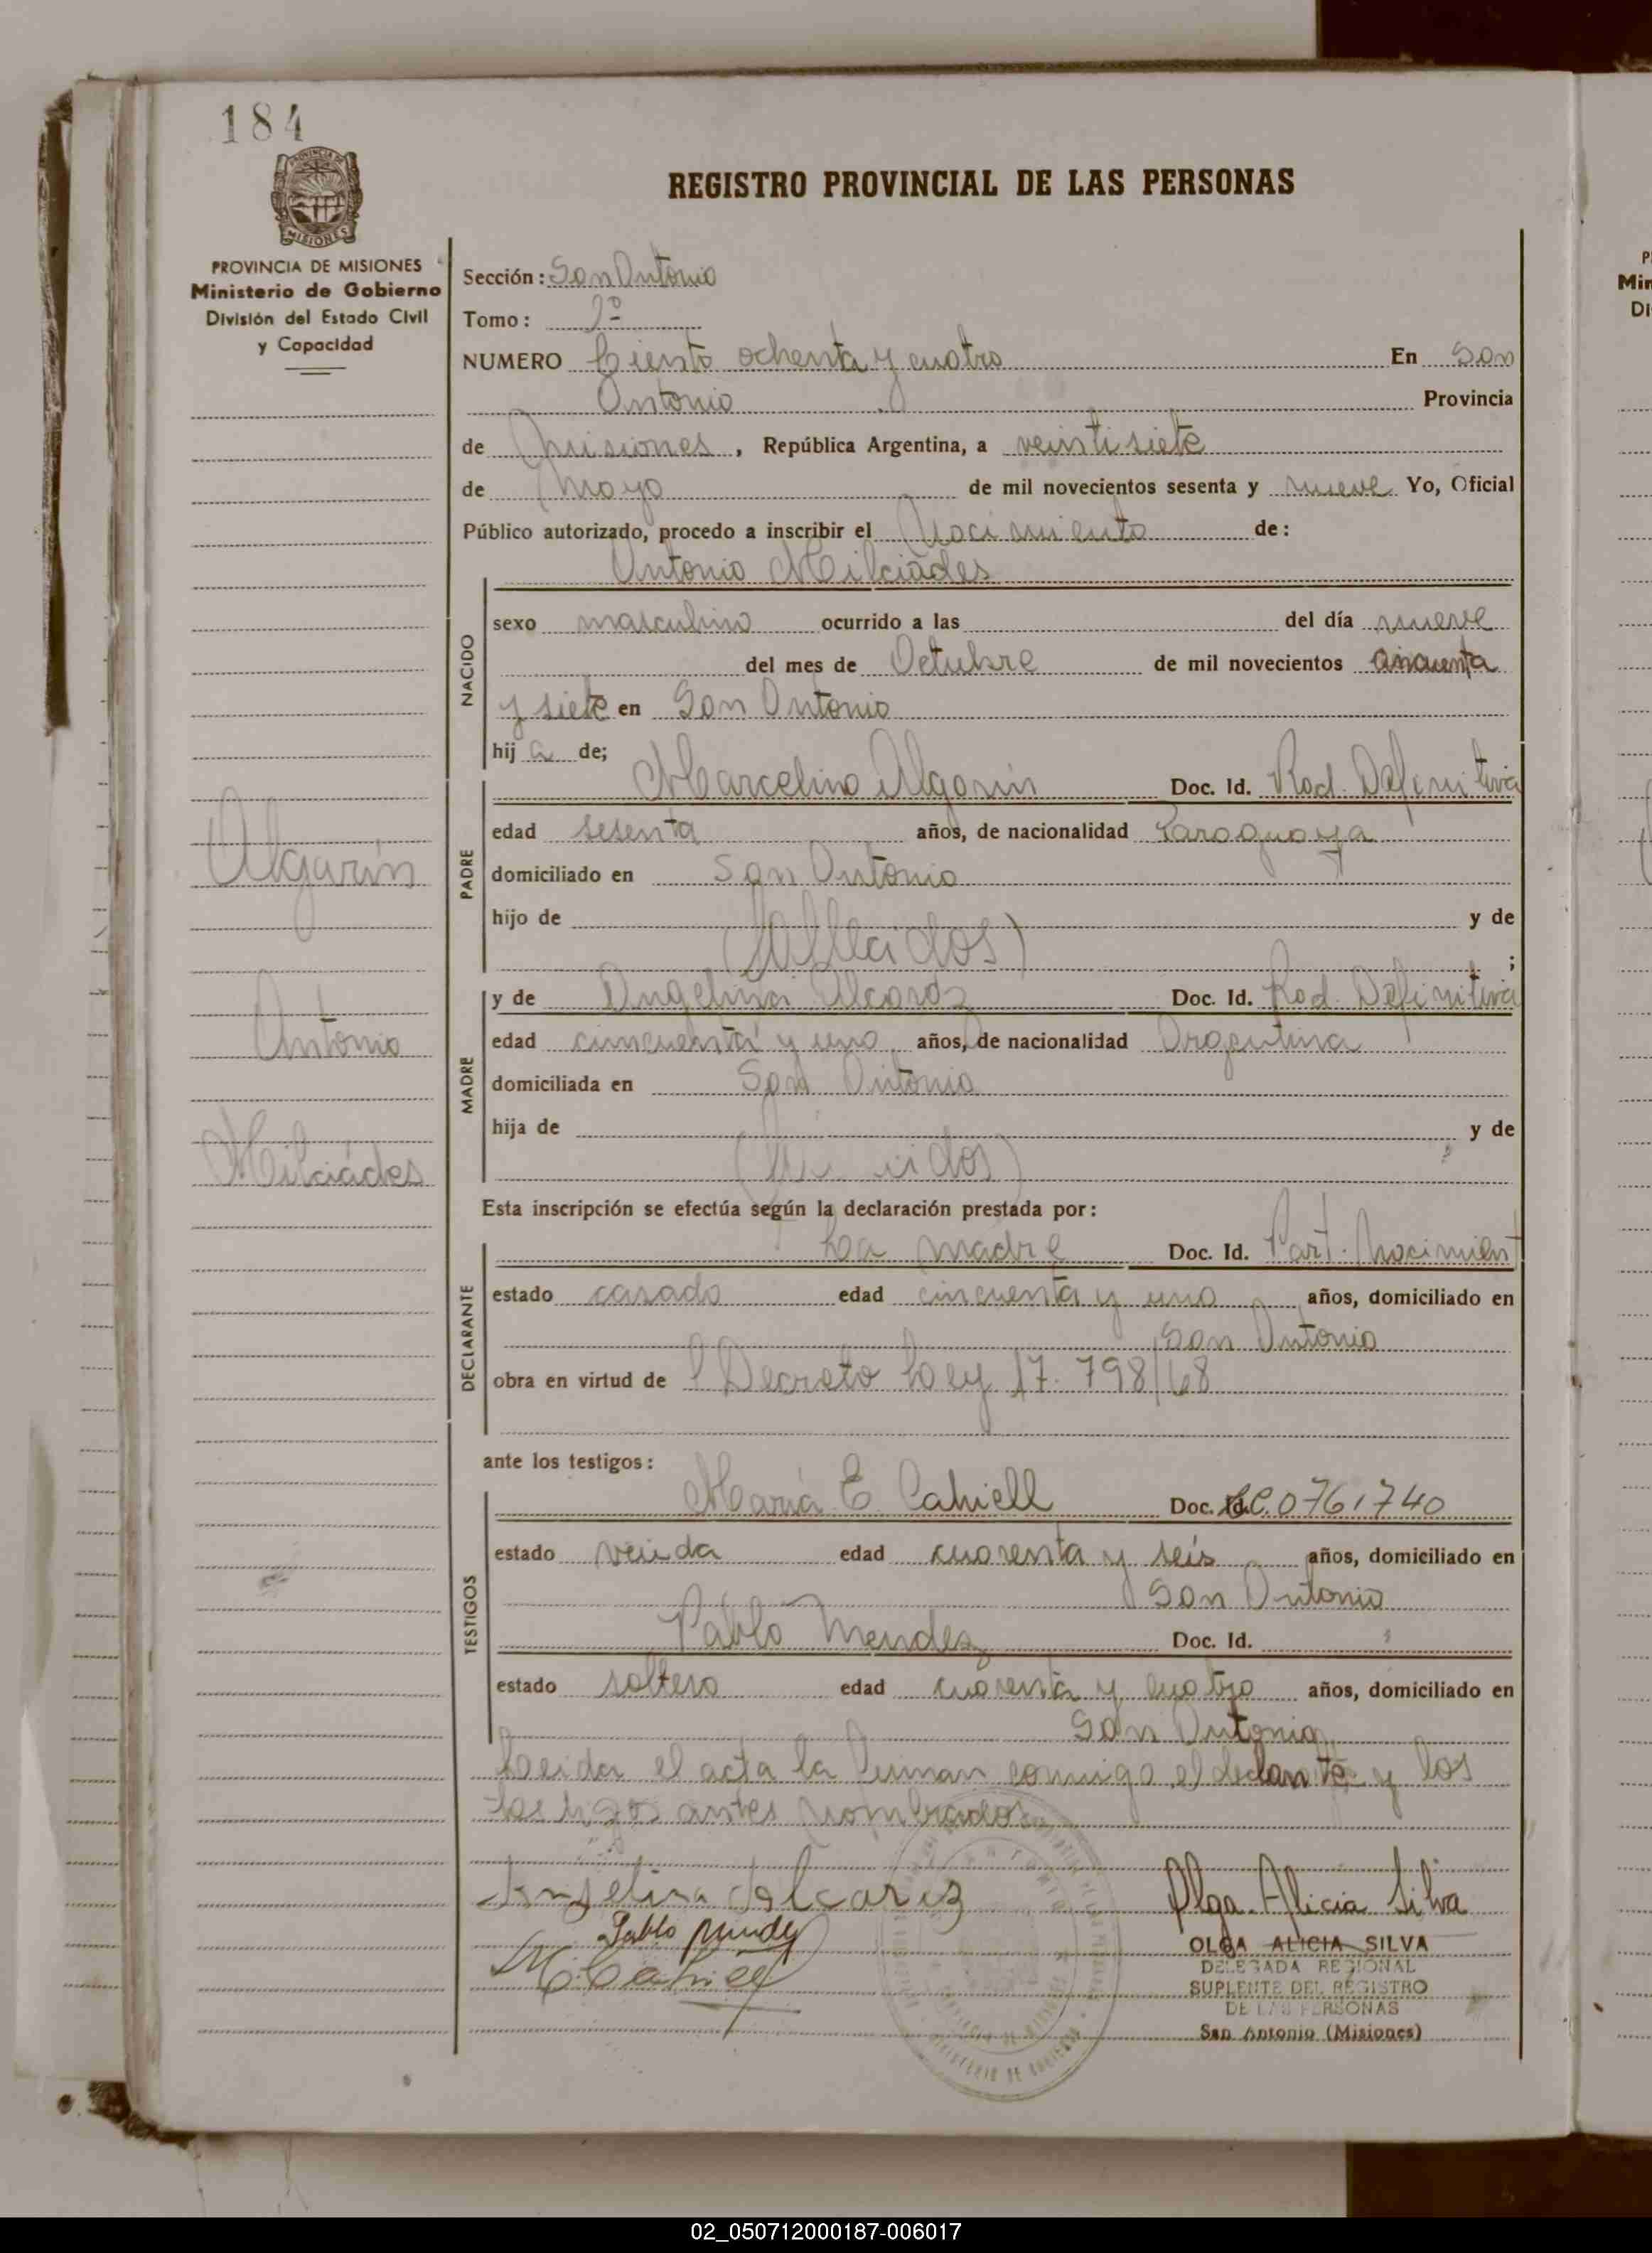 184
PROVINCIA DE
MISIONES
REGISTRO PROVINCIAL DE LAS PERSONAS
PROVINCIA DE MISIONES
Ministerio de Gobierno
División del Estado Civil
y Capacidad
Sección: San Antonio
Tomo:
NUMERO Ciento ochenta y cuatro En San
Antonio Provincia
de Misiones, República Argentina, a veintisiete
de Mayo de mil novecientos sesenta y nueve Yo, Oficial
Público autorizado, procedo a inscribir el Nacimiento de:
Antonio Milciades
NACIDO
sexo masculino ocurrido a las del día nueve
del mes de Octubre de mil novecientos cincuenta
y siete en San Antonio
hij a de;
Marcelino Algarin Doc. Id. Rad. Definitiva
PADRE
edad sesenta años, de nacionalidad Paraguaya
domiciliado en San Antonio
hijo de y de
(fallecidos) ;
Algarín
Antonio
Milciádes
MADRE
y de Angelina Alcaraz Doc. Id. Rad. Definitiva
edad cincuenta y uno años, de nacionalidad Argentina
domiciliada en San Antonio
hija de y de
Esta inscripción se efectúa según la declaración prestada por:
DECLARANTE
La madre Doc. Id. Part. Nacimient
estado casado edad cincuenta y uno años, domiciliado en
San Antonio
obra en virtud de Decreto Ley 17.798/68
ante los testigos:
TESTIGOS
María E. Cahiell Doc. Id. LC.0761740
estado veiuda edad cuarenta y seis años, domiciliado en
San Antonio
Pablo Mendez Doc. Id.
estado soltero edad cuarenta y cuatro años, domiciliado en
San Antonio
Leida el acta la firman conmigo el declante y los
testigos antes nombrados
Angelina Alcaraz Olga Alicia Silva
Pablo Mendez
M. Cahiell
OLGA ALICIA SILVA
DELEGADA REGIONAL
SUPLENTE DEL REGISTRO
DE LAS PERSONAS
San Antonio (Misiones)
02_050712000187-006017